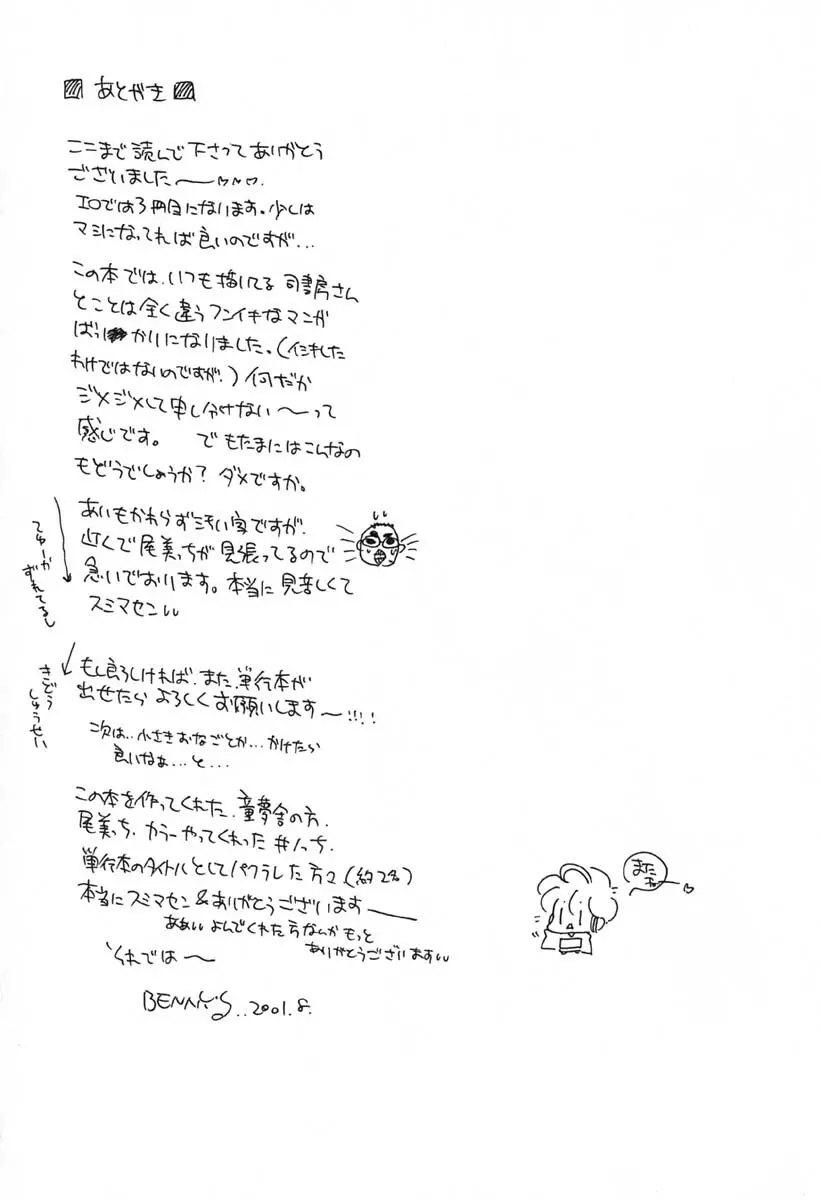 あとがき
ここまで読んで下さってありがとう
ございました〜♡♡♡.
エロでは3冊目になります。少しは
マシになってれば良いのですが...
この本では、いつも描いてる司書房さん
とことは全く違うフンイキなマンガ
ばっかりになりました。(イシキした
わけではないのですが。)何だか
ジメジメして申し分けない〜って
感じです。 でもたまにはこんなの
もどうでしょうか? ダメですか。
あいもかわらず汚い字ですが、
近くで尾美っちが見張ってるので
急いでおります。本当に見苦しくて
スミマセン
てゆーか
ずれてるし
きどう
しゅうせい
もし良ろしければ、また、単行本が
出せたら よろしくお願いします〜!!!!
次は..小さきおなごとか...かけたら
良いなぁ...と...
この本を作ってくれた、童夢舎の方、
尾美っち、カラーやってくれた
単行本のタイトルとしてパクラレした方々(約2名)
本当にスミマセン&ありがとうございます——
ああいよんでくれた方なんかもっと
ありがとうございます
それでは〜
BENNY'S..2001.8.
また
ね—♡